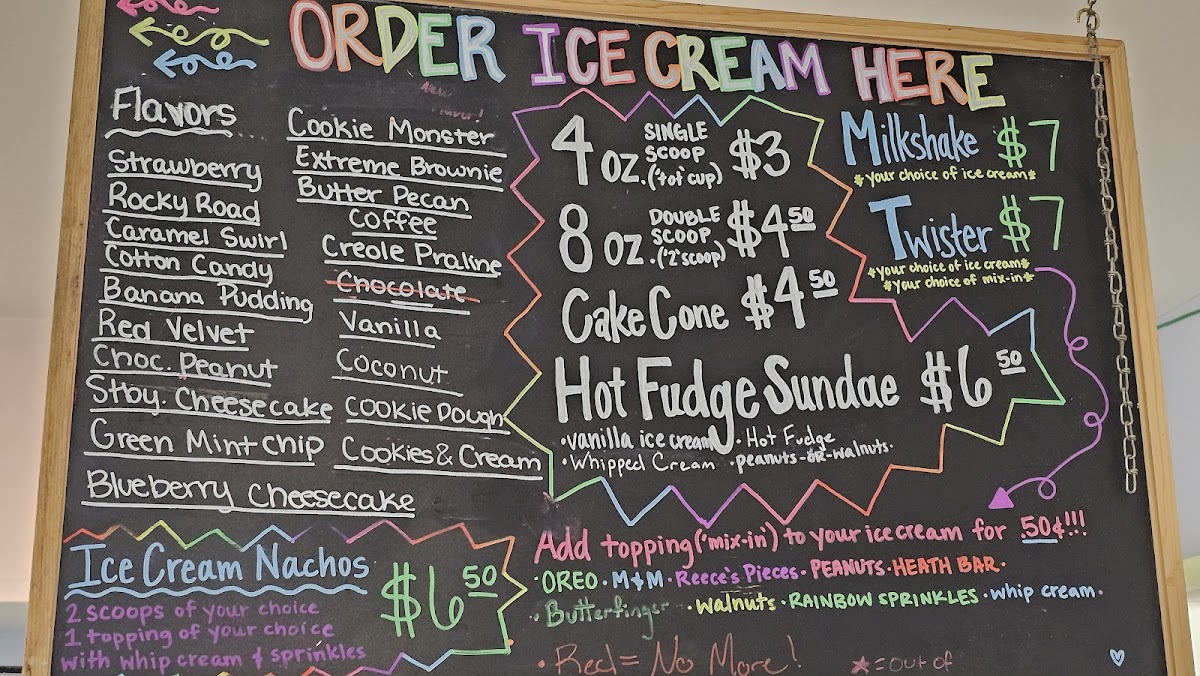 ORDER ICE CREAM HERE
Flavors
Strawberry
Rocky Road
Caramel Swirl
Cotton Candy
Banana Pudding
Red Velvet
Choc. Peanut
Stby. Cheesecake
Green Mint chip
Blueberry Cheesecake
New
Flavor!
Cookie Monster
Extreme Brownie
Butter Pecan
Coffee
Creole Praline
Chocolate
Vanilla
Coconut
Cookie Dough
Cookies & Cream
4 oz. SINGLE SCOOP ('tot' cup) $3
8 oz. DOUBLE SCOOP ('2' scoop) $4.50
Cake Cone $4.50
Hot Fudge Sundae $6.50
•vanilla ice cream •Hot Fudge
•Whipped Cream •peanuts-OR-walnuts•
Milkshake $7
*your choice of ice cream*
Twister $7
*your choice of ice cream*
*your choice of mix-in*
Ice Cream Nachos $6.50
2 scoops of your choice
1 topping of your choice
with whip cream & sprinkles
Add topping ('mix-in') to your ice cream for .50¢!!!
•OREO •M&M •Reece's Pieces •PEANUTS •HEATH BAR•
•Butterfinger •walnuts •RAINBOW SPRINKLES •whip cream•
•Red = No More! * = out of